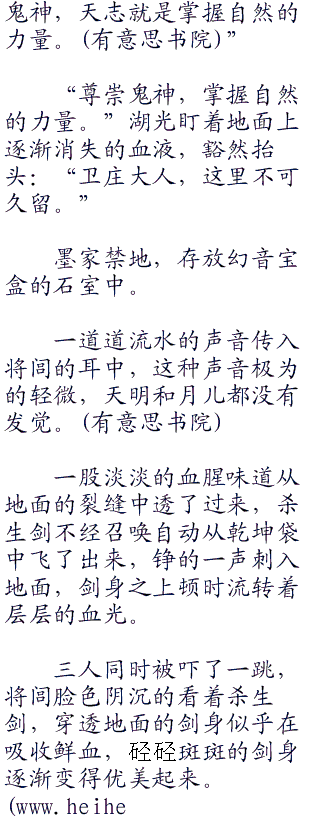 鬼神，天志就是掌握自然的
力量。(有意思书院)”
“尊崇鬼神，掌握自然
的力量。”湖光盯着地面上
逐渐消失的血液，豁然抬
头：“卫庄大人，这里不可
久留。”
墨家禁地，存放幻音宝
盒的石室中。
一道道流水的声音传入
将闾的耳中，这种声音极为
的轻微，天明和月儿都没有
发觉。(有意思书院)
一股淡淡的血腥味道从
地面的裂缝中透了过来，杀
生剑不经召唤自动从乾坤袋
中飞了出来，铮的一声刺入
地面，剑身之上顿时流转着
层层的血光。
三人同时被吓了一跳，
将闾脸色阴沉的看着杀生
剑，穿透地面的剑身似乎在
吸收鲜血，硁硁斑斑的剑身
逐渐变得优美起来。
(www.heihe